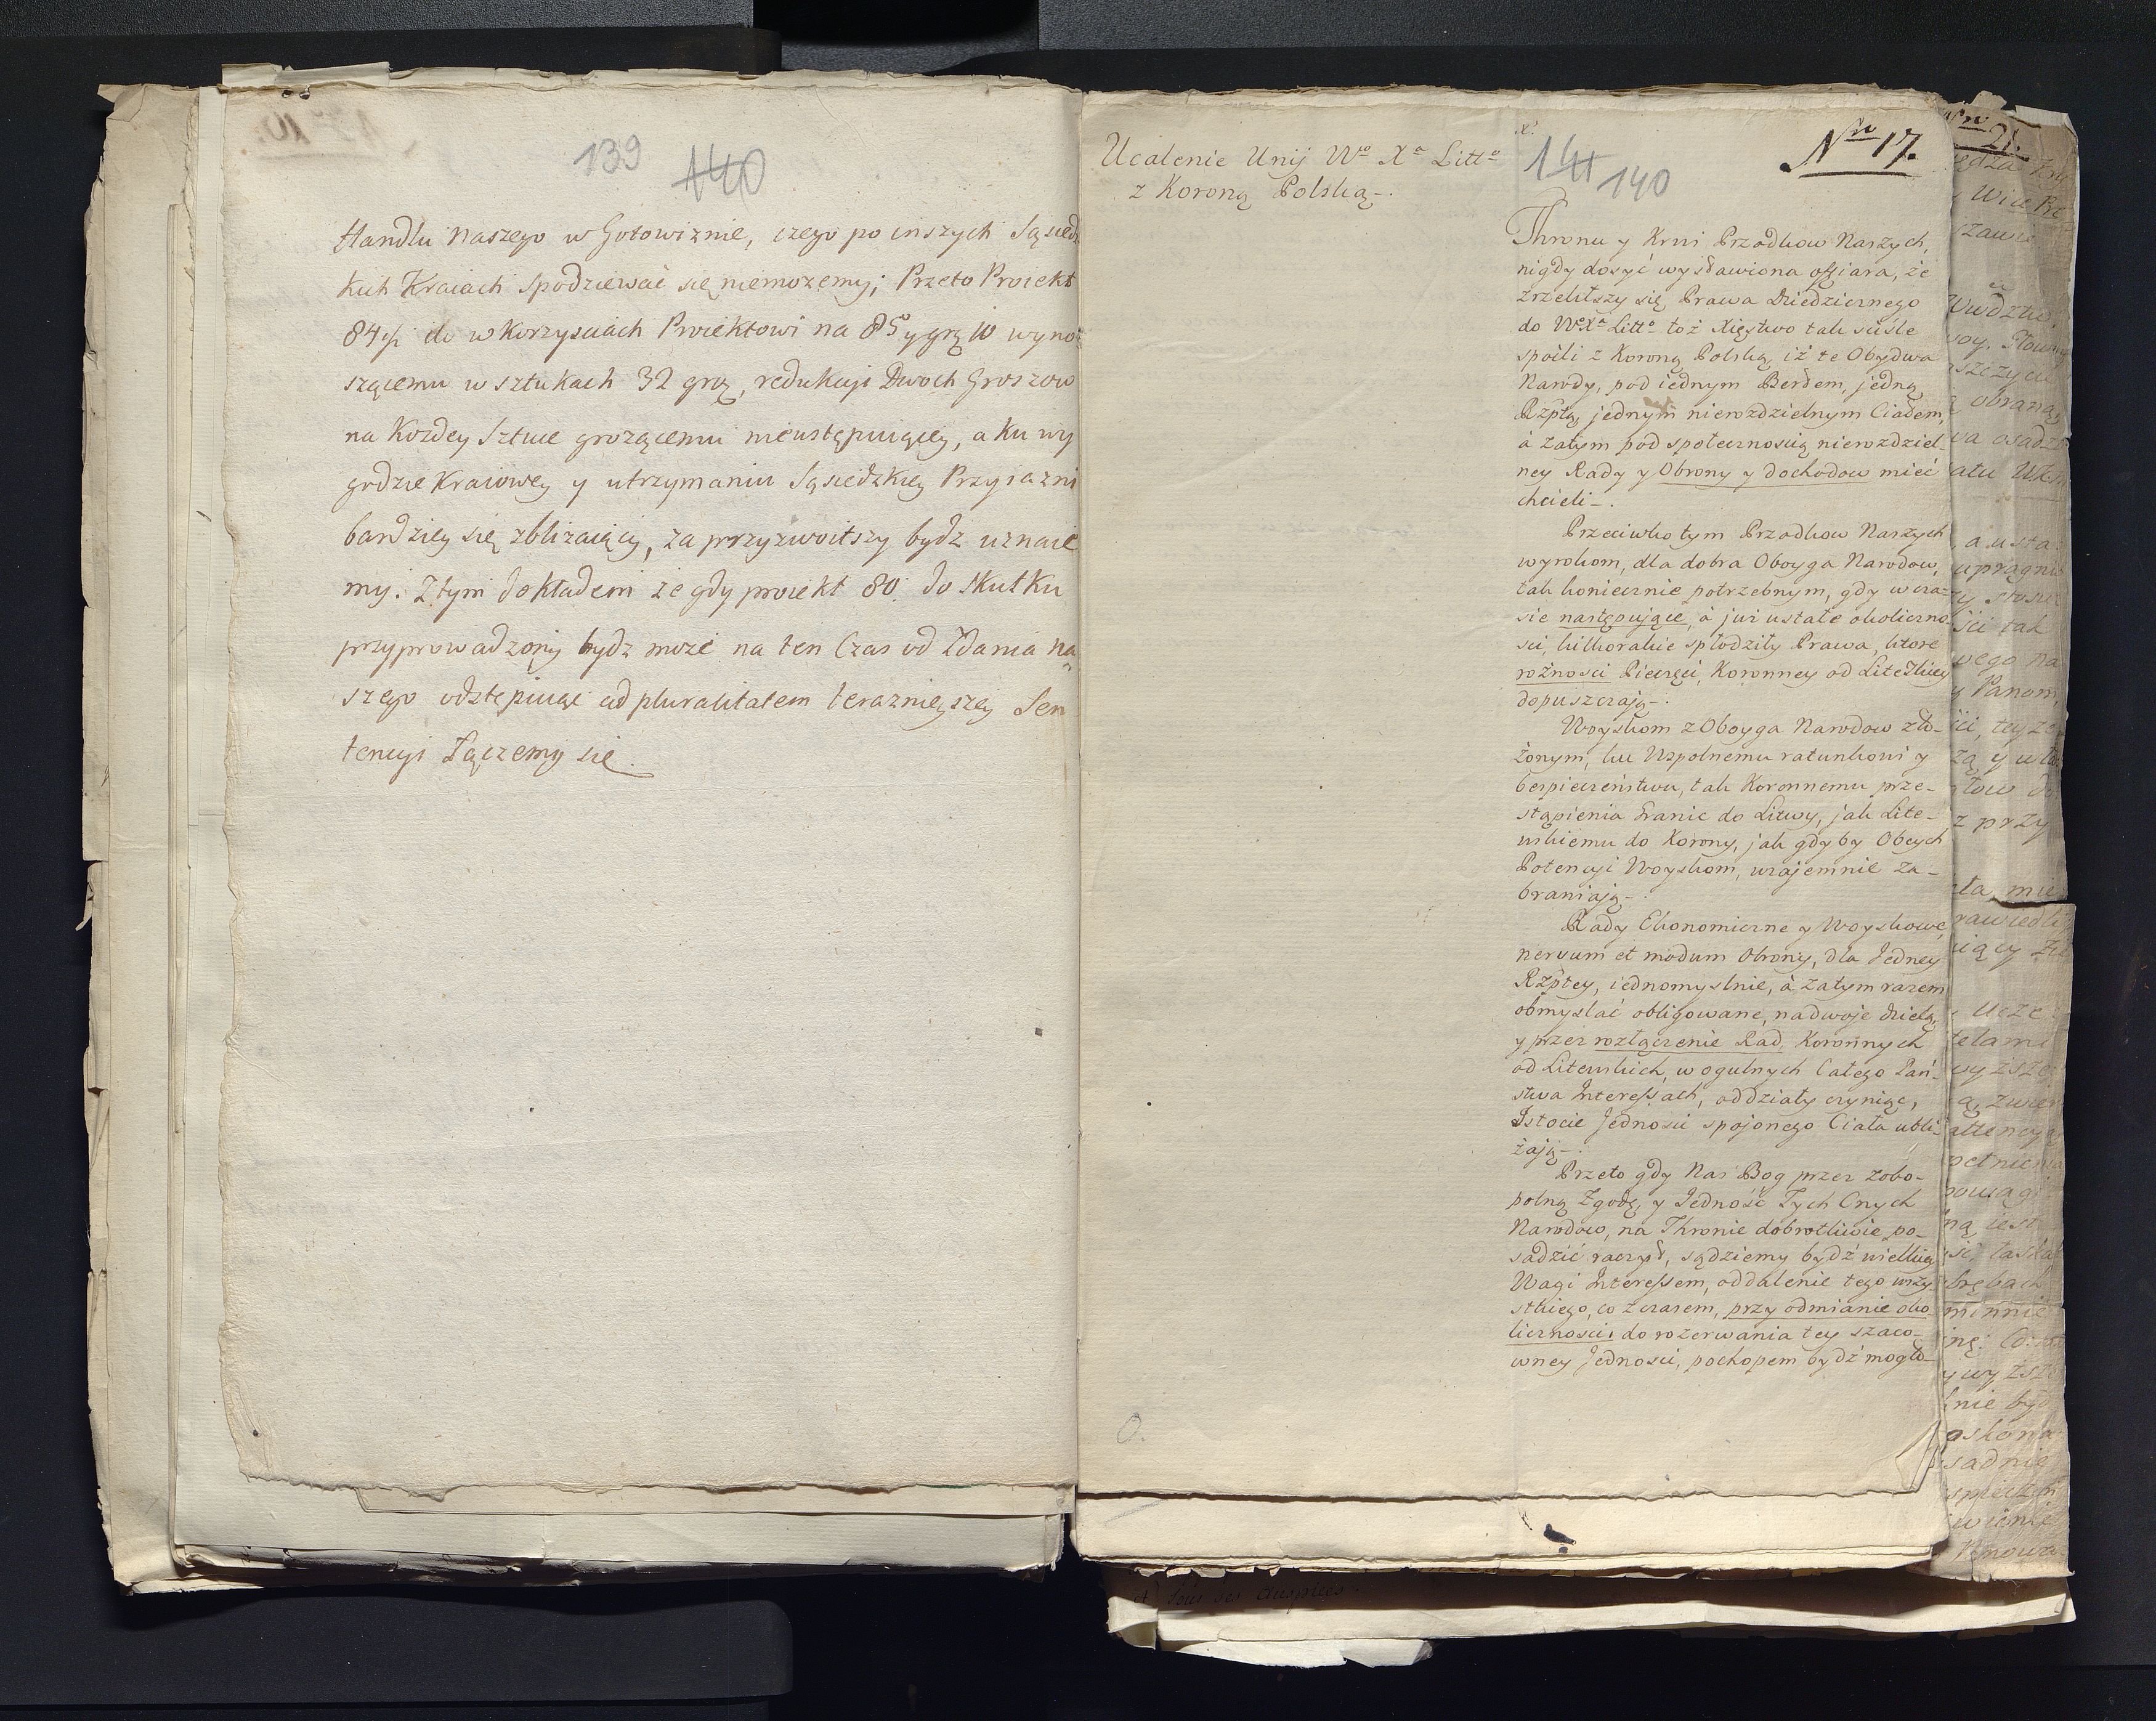 139 140
Handlu Naszego w Gotowiznie, czego po inszych Sąsiedz
kich Kraiach spodziewać się niemożemy; Przeto Proiekt
84 do w korzysciach Proiektowi na 85 y grz 10 wyno=
szącemu w sztukach 32 groz, redukcyi Dwoch Groszow
na Kozdey Sztuce grożącemu nieustępuiący, a ku wy
godzie Kraiowey y utrzymaniu Sąsiedzkiey Przyiazni
bardziey się zbliżaiący, za przyzwoitszy bydz uznaie
my. Z tym dokładem że gdy proiekt 80 do Skutku
przyprowadzony bydz może na ten Czas od Zdania Na=
szego odstępuiąc ad pluralitatem teraznieyszey Sen
tencyi Łączemy się.
Ucalenie Unij Wo Xa Litto
z Koroną Polską.
141 140
Nro 17.
Thronu y Krwi Przodkow Naszych,
nigdy dosyć wysławiona offiara, że
zrzekłszy się Prawa Dziedzicznego
do Wo Xa Litto toż Xięstwo tak ściśle
spoili z Koroną Polską, iż te Obydwa
Narody, pod iednym Berłem, jedną
Rzptą, jednym nierozdzielnym Ciałem,
à zatym pod społecznoscią nierozdziel-
ney Rady y Obrony y dochodow mieć
chcieli.
Przeciwko tym Przodkow Naszych
wyrokom, dla dobra Oboyga Narodow,
tak koniecznie potrzebnym, gdy w cza-
sie następujące, à już ustałe okoliczno-
sci, kilkorakie spłodziły Prawa, ktore
rożnosci Pieczęci, Koronney od Litewskiey
dopuszczają.
Woyskom z Oboyga Narodow zło-
żonym, ku Wspolnemu ratunkowi y
bespieczeństwu, tak Koronnemu prze-
stąpienia Granic do Litwy, jak Lite-
wskiemu do Korony, jak gdyby Obcych
Potencyi Woyskom, wzajemnie za-
braniają.
Rady Ekonomiczne y Woyskowe,
nervum et modum Obrony, dla Jedney
Rzptey, iednomyslnie, à zatym razem
obmyslać obligowane, na dwoje dzielą,
y przez rozłączenie Rad Koronnych
od Litewskich, w ogulnych Całego Pań-
stwa Interessach, oddziały czyniąc,
Istocie Jednosci spojonego Ciała ubli-
żają.
Przeto gdy Nas Bog przez zobo-
polną Zgodę, y Jedność Tych Cnych
Narodow, na Thronie dobrotliwie po-
sadzić raczył, sądziemy bydź wielkiey
Wagi Interessem, oddalenie tego wszy-
stkiego, co z czasem, przy odmianie oko-
licznosci, do rozerwania tey szaco-
wney Jednosci, pochopem bydź mogło